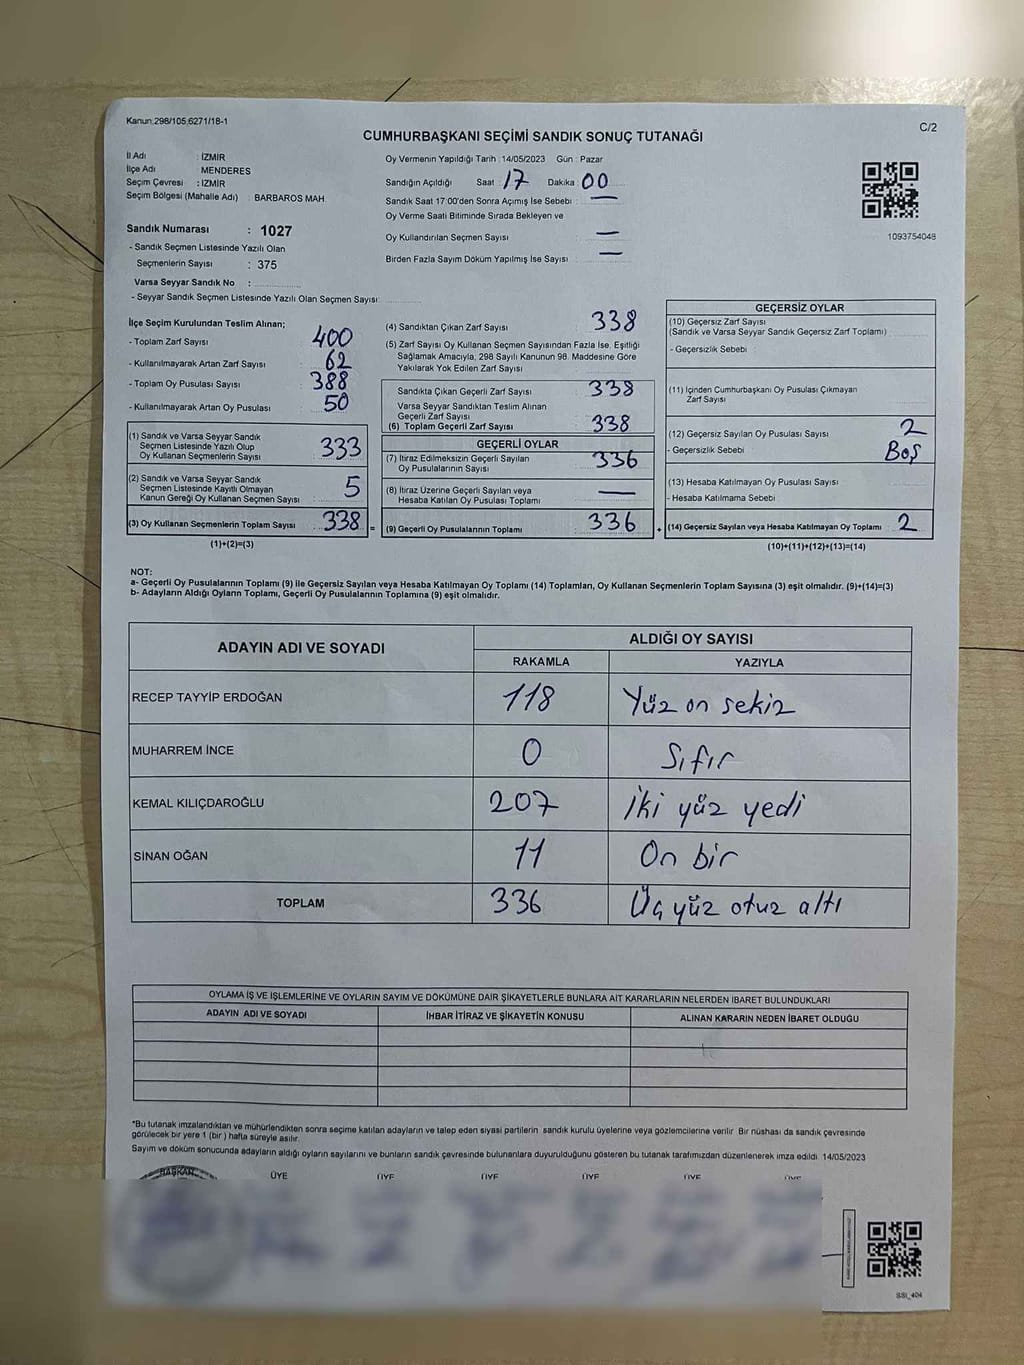 Kanun 298/105,6271/18-1
C/2
CUMHURBAŞKANI SEÇİMİ SANDIK SONUÇ TUTANAĞI
İl Adı : İZMİR
İlçe Adı : MENDERES
Seçim Çevresi : İZMİR
Seçim Bölgesi (Mahalle Adı) : BARBAROS MAH.
Sandık Numarası : 1027
- Sandık Seçmen Listesinde Yazılı Olan
Seçmenlerin Sayısı : 375
Varsa Seyyar Sandık No :
- Seyyar Sandık Seçmen Listesinde Yazılı Olan Seçmen Sayısı:
Oy Vermenin Yapıldığı Tarih : 14/05/2023 Gün : Pazar
Sandığın Açıldığı Saat : 17 Dakika : 00
Sandık Saat 17:00'den Sonra Açımış İse Sebebi : —
Oy Verme Saati Bitiminde Sırada Bekleyen ve
Oy Kullandırılan Seçmen Sayısı —
Birden Fazla Sayım Döküm Yapılmış İse Sayısı —
1093754048
İlçe Seçim Kurulundan Teslim Alınan;
- Toplam Zarf Sayısı : 400
- Kullanılmayarak Artan Zarf Sayısı : 62
- Toplam Oy Pusulası Sayısı : 388
- Kullanılmayarak Artan Oy Pusulası : 50
(1) Sandık ve Varsa Seyyar Sandık
Seçmen Listesinde Yazılı Olup
Oy Kullanan Seçmenlerin Sayısı : 333
(2) Sandık ve Varsa Seyyar Sandık
Seçmen Listesinde Kayıtlı Olmayan
Kanun Gereği Oy Kullanan Seçmen Sayısı : 5
(3) Oy Kullanan Seçmenlerin Toplam Sayısı : 338 =
(1)+(2)=(3)
(4) Sandıktan Çıkan Zarf Sayısı 338
(5) Zarf Sayısı Oy Kullanan Seçmen Sayısından Fazla İse, Eşitliği
Sağlamak Amacıyla, 298 Sayılı Kanunun 98. Maddesine Göre
Yakılarak Yok Edilen Zarf Sayısı
Sandıkta Çıkan Geçerli Zarf Sayısı 338
Varsa Seyyar Sandıktan Teslim Alınan
Geçerli Zarf Sayısı
(6) Toplam Geçerli Zarf Sayısı 338
GEÇERLİ OYLAR
(7) İtiraz Edilmeksizin Geçerli Sayılan
Oy Pusulalarının Sayısı 336
(8) İtiraz Üzerine Geçerli Sayılan veya
Hesaba Katılan Oy Pusulası Toplamı —
(9) Geçerli Oy Pusulalarının Toplamı 336 +
GEÇERSİZ OYLAR
(10) Geçersiz Zarf Sayısı
(Sandık ve Varsa Seyyar Sandık Geçersiz Zarf Toplamı)
- Geçersizlik Sebebi :
(11) İçinden Cumhurbaşkanı Oy Pusulası Çıkmayan
Zarf Sayısı
(12) Geçersiz Sayılan Oy Pusulası Sayısı 2
- Geçersizlik Sebebi : Boş
(13) Hesaba Katılmayan Oy Pusulası Sayısı
- Hesaba Katılmama Sebebi :
(14) Geçersiz Sayılan veya Hesaba Katılmayan Oy Toplamı 2
(10)+(11)+(12)+(13)=(14)
NOT:
a- Geçerli Oy Pusulalarının Toplamı (9) ile Geçersiz Sayılan veya Hesaba Katılmayan Oy Toplamı (14) Toplamları, Oy Kullanan Seçmenlerin Toplam Sayısına (3) eşit olmalıdır. (9)+(14)=(3)
b- Adayların Aldığı Oyların Toplamı, Geçerli Oy Pusulalarının Toplamına (9) eşit olmalıdır.
ADAYIN ADI VE SOYADI ALDIĞI OY SAYISI
RAKAMLA YAZIYLA
RECEP TAYYİP ERDOĞAN 118 Yüz on sekiz
MUHARREM İNCE 0 Sıfır
KEMAL KILIÇDAROĞLU 207 İki yüz yedi
SİNAN OĞAN 11 On bir
TOPLAM 336 Üç yüz otuz altı
OYLAMA İŞ VE İŞLEMLERİNE VE OYLARIN SAYIM VE DÖKÜMÜNE DAİR ŞİKAYETLERLE BUNLARA AİT KARARLARIN NELERDEN İBARET BULUNDUKLARI
ADAYIN ADI VE SOYADI İHBAR İTİRAZ VE ŞİKAYETİN KONUSU ALINAN KARARIN NEDEN İBARET OLDUĞU
*Bu tutanak imzalandıktan ve mühürlendikten sonra seçime katılan adayların ve talep eden siyasi partilerin sandık kurulu üyelerine veya gözlemcilerine verilir. Bir nüshası da sandık çevresinde
görülecek bir yere 1 (bir) hafta süreyle asılır.
Sayım ve döküm sonucunda adayların aldığı oyların sayılarını ve bunların sandık çevresinde bulunanlara duyurulduğunu gösteren bu tutanak tarafımızdan düzenlenerek imza edildi. 14/05/2023
BAŞKAN ÜYE ÜYE ÜYE ÜYE ÜYE ÜYE
SSI_404